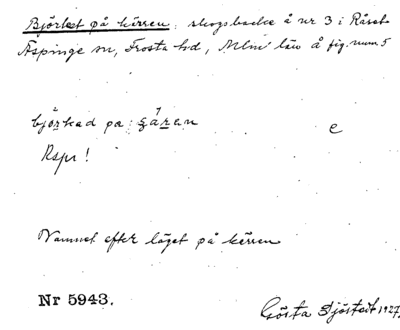 Björket på kärren, skogsbacke å nr 3 i Råset
Äspinge sn, Frosta hd, Mlm: län å fig. num 5
björkad pa: çáran
e
Rspr!
Namnet efter läget på kärren
Nr 5943.
Gösta Sjöstedt 1927.